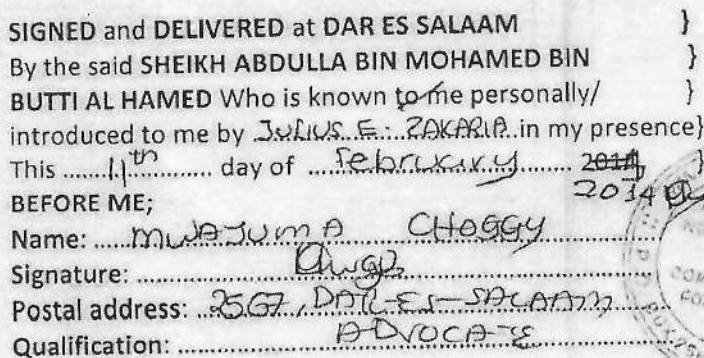 SIGNED and DELIVERED at DAR ES SALAAM }
By the said SHEIKH ABDULLA BIN MOHAMED BIN }
BUTTI AL HAMED Who is known to me personally/ }
introduced to me by JULIUS E. ZAKARIA in my presence}
This ......11th............ day of ....February........ 2014 }
2014
BEFORE ME;
Name: .....MWAJUMA CHOGGY
Signature:
Postal address: ..2567, DAR-ES-SALAAM
Qualification: ADVOCATE